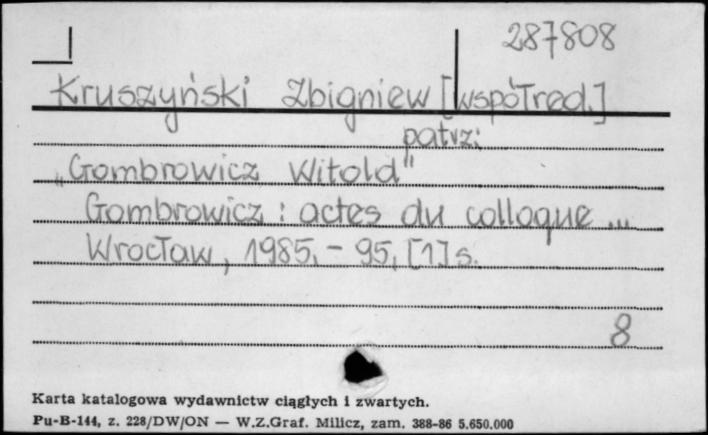 287808
Kruszyński Zbigniew [współred.]
patrz:
„Gombrowicz Witold"
Gombrowicz : actes du colloque ...
Wrocław, 1985. - 95, [1] s.
8
Karta katalogowa wydawnictw ciągłych i zwartych.
Pu-B-144, z. 228/DW/ON — W.Z.Graf. Milicz, zam. 388-86 5.650.000